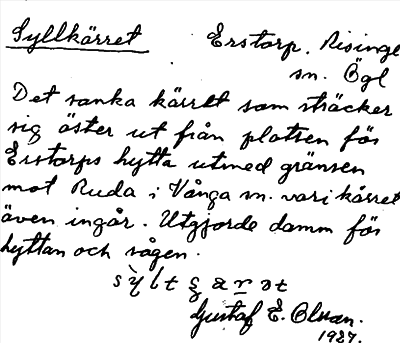 Syllkärret Erstorp. Risinge
sn. Ögl
Det sanka kärret som sträcker
sig öster ut från platsen för
Erstorps hytta utmed gränsen
mot Ruda i Vånga sn. vari kärret
även ingår. Utgjorde damm för
hyttan och sågen.
Gustaf E. Olsson.
1927.